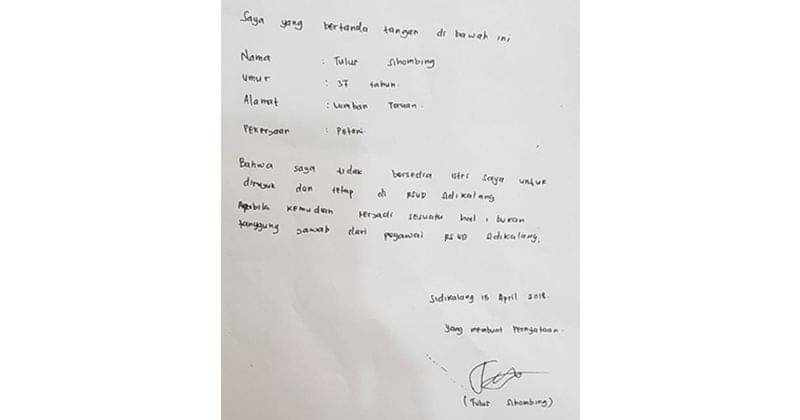 Saya yang bertanda tangan di bawah ini
Nama : Tulus Sihombing
Umur : 37 tahun.
Alamat : Lumban Toruan.
Pekerjaan : Petani
Bahwa saya tidak bersedia istri saya untuk
dirujuk dan tetap di RSUD Sidikalang
Apabila kemudian terjadi sesuatu hal, bukan
tanggung jawab dari pegawai RSUD Sidikalang.
Sidikalang 15 April 2018.
Yang membuat Pernyataan.
(Tulus Sihombing)